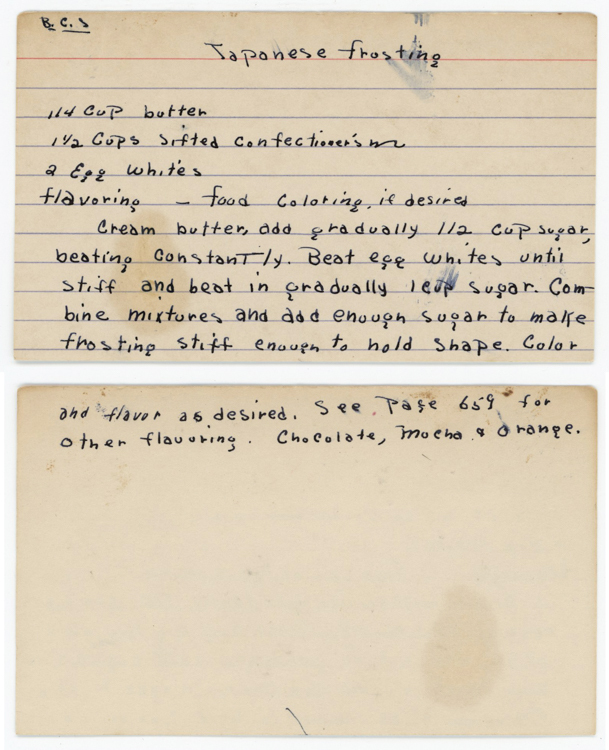 B.C.S
Japanese frosting
1/4 Cup butter
1 1/2 Cups Sifted Confectioner's
2 Egg Whites
flavoring - food Coloring, if desired
Cream butter, add gradually 1/2 Cup sugar,
beating Constantly. Beat egg whites until
stiff and beat in gradually 1 cup sugar. Com-
bine mixtures and add enough sugar to make
frosting stiff enough to hold shape. Color
and flavor as desired. See Page 659 for
other flavoring. Chocolate, Mocha & Orange.